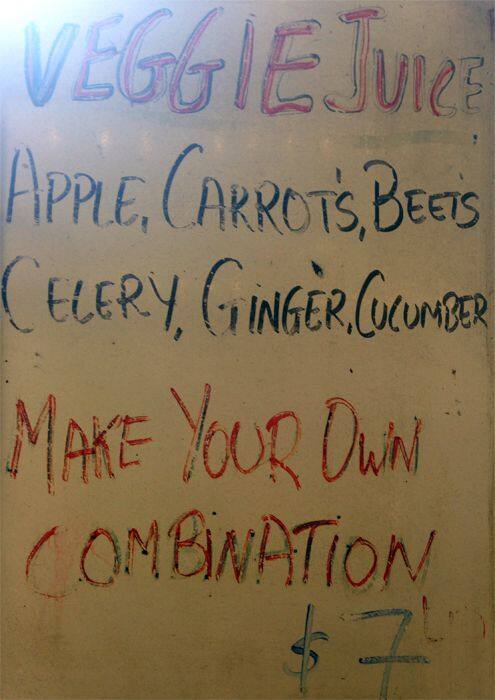 VEGGIE JUICE
APPLE, CARROT'S, BEETS
CELERY, GINGER, CUCUMBER
MAKE YOUR OWN
COMBINATION
$ 7